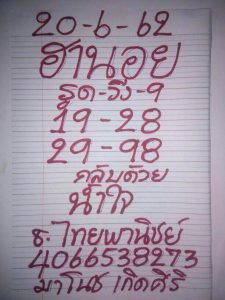 20-6-62
ฮานอย
รูด-วิ่ง-9
19-28
29-98
กลับด้วย
น้ำใจ
ธ.ไทยพานิชย์
4066538273
มาโนช เกิดศิริ